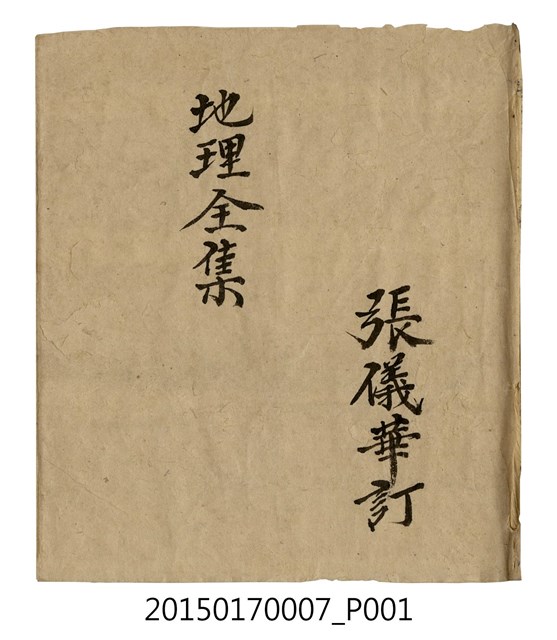 張儀華訂
地理全集
20150170007_P001